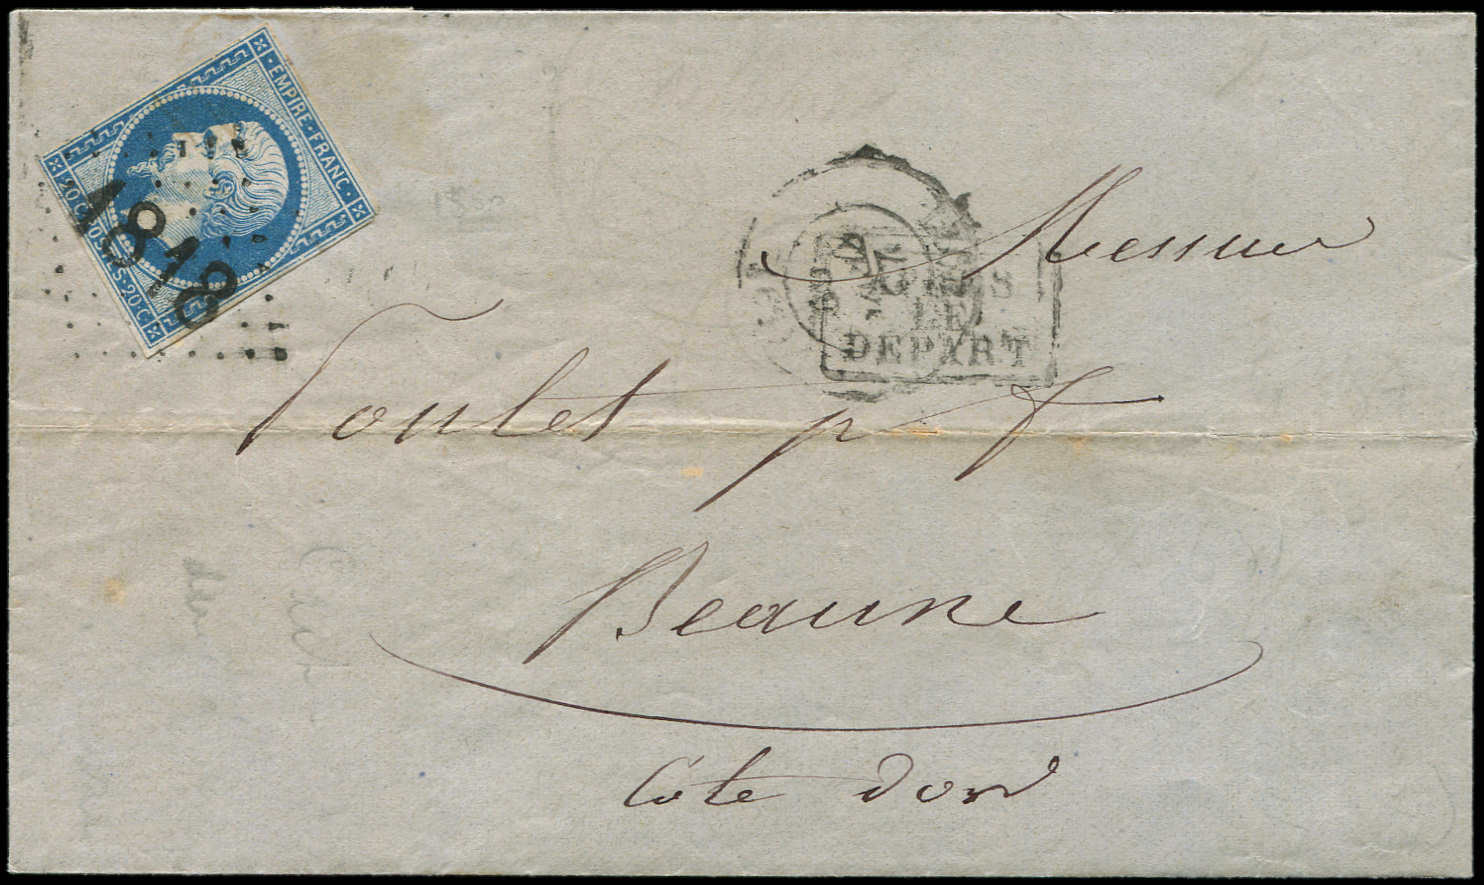 EMPIRE · FRANC ·
20·C. POSTES·20·C
1818
APRES
LE
DEPART
Messieurs
Poulet p f
Beaune
Cote Dor